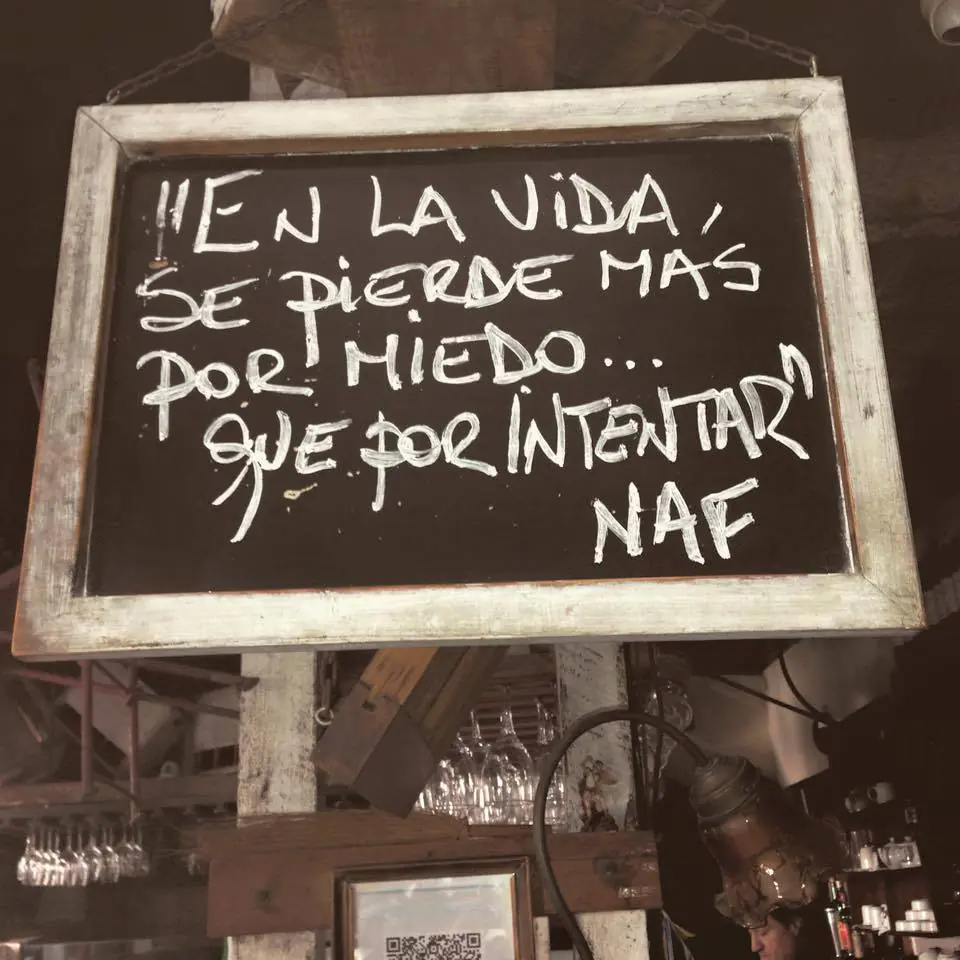 "EN LA VIDA,
SE PIERDE MÁS
POR MIEDO...
QUE POR INTENTAR"
NAF